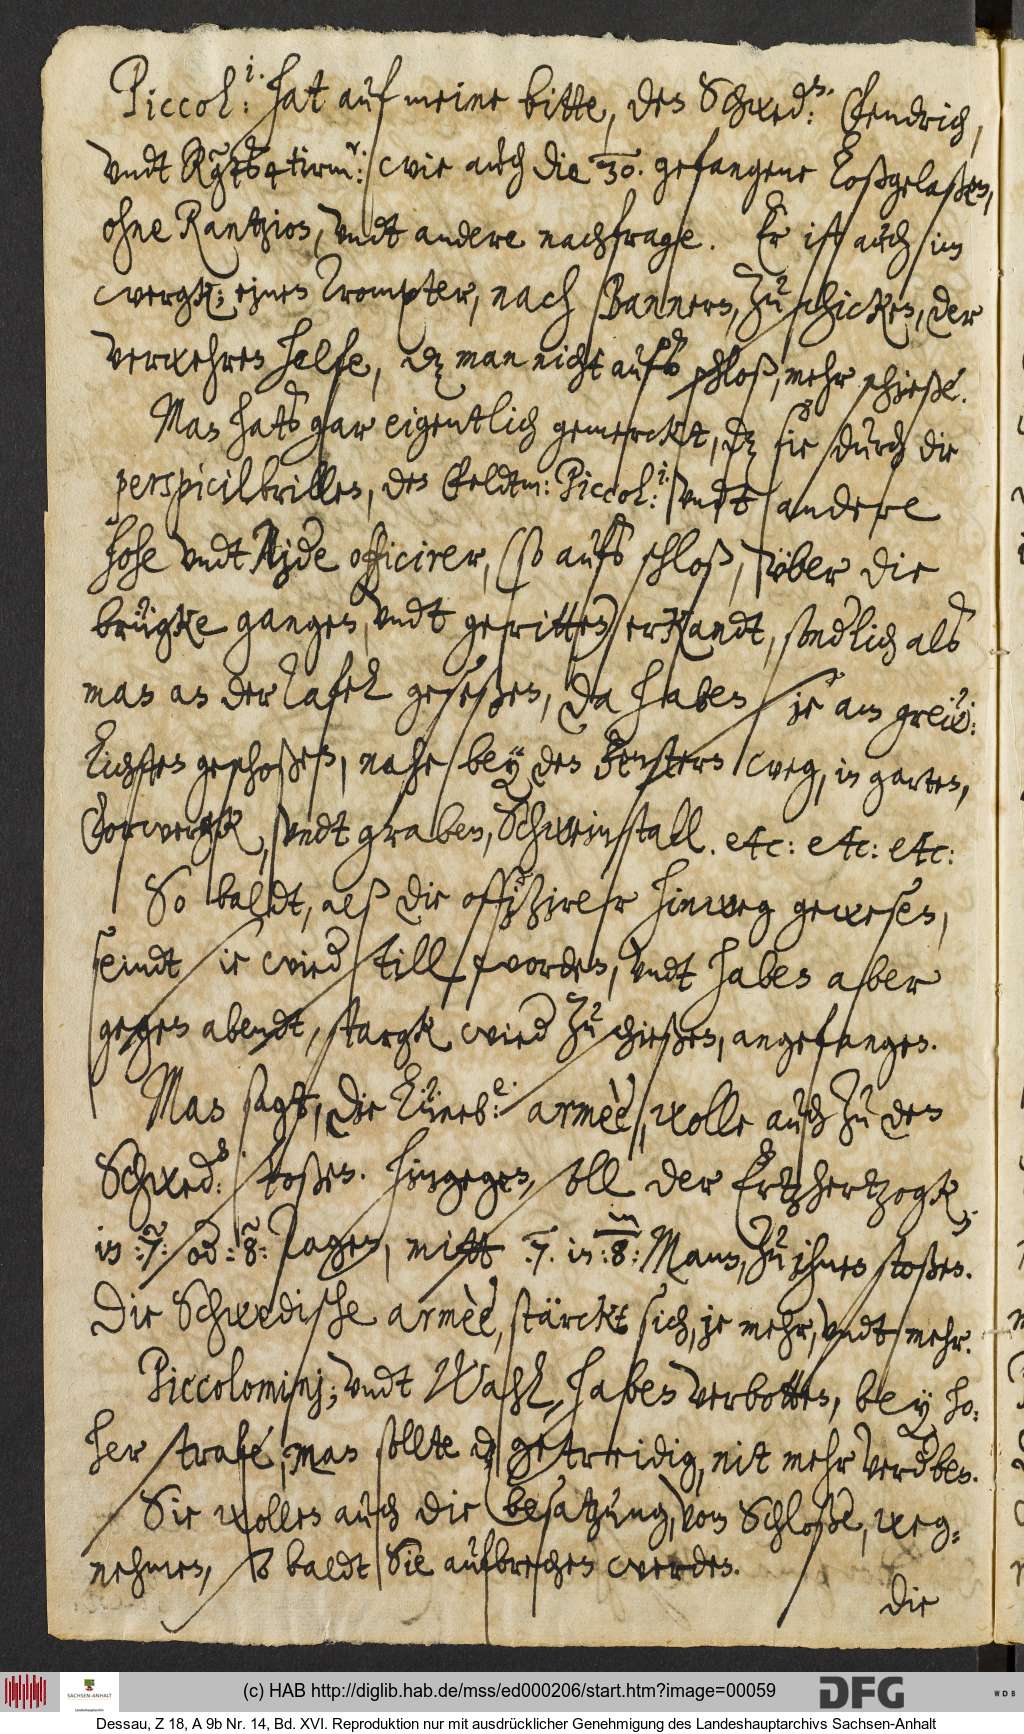 Piccol:i. hat auf meine bitte, den Schwed:n. Fendrich,
undt wie auch die 30. gefangene loßgelaßen,
ohne Rantzion, undt andere nachfrage. Er ist auch im
wergk: einen Trompter, nach Bannern, zu schicken, der
verwehren helfe, dz man nicht aufs schloß, mehr schieße.
Man hats gar eigentlich gemerckt, dz sie durch die
perspicilbrillen, den Feldtm: Piccol:i. undt andere
hohe undt Nide officirer, (so aufs schloß, über die
brügke gangen, undt geritten) erkandt, sondlich als
man an der Tafel geseßen, da haben sie am grew:
lichsten geschoßen, nahe bey den Fenstern weg, in garten,
Vorwergk, undt graben, Schweinstall. etc: etc: etc:
So baldt, alß die offizirer hinweg gewesen,
seindt sie wied still worden, undt haben aber
gegen abendt, starck wied zu schießen, angefangen.
Man sagt, die Lüneb:e. armèe, wolle auch zu den
Schwed: stoßen. Hingegen, soll der Ertzhertzogk,
in :7: od: 8: Tagen, mitt .7. in :8: Mann, zu ihnen stoßen.
Die Schwedische armèe, stärckt sich, je mehr, undt mehr.
Piccolominj; undt Wahl, haben verbotten, bey ho:
her strafe, man sollte dz getreidig, nit mehr verdben.
Sie wollen auch die besatzung, vom Schloße, weg-
nehmen, so baldt Sie aufbrechen werden.
die
(c) HAB http://diglib.hab.de/mss/ed000206/start.htm?image=00059
SACHSEN-ANHALT
DFG
WDB
Dessau, Z 18, A 9b Nr. 14, Bd. XVI. Reproduktion nur mit ausdrücklicher Genehmigung des Landeshauptarchivs Sachsen-Anhalt